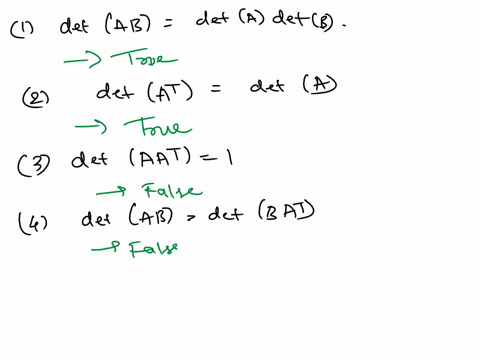 (1) det (AB) = det (A) det (B).
→ True
(2) det (AT) = det (A)
→ True
(3) det (AAT) = 1
→ False
(4) det (AB) = det (BAT)
→ False